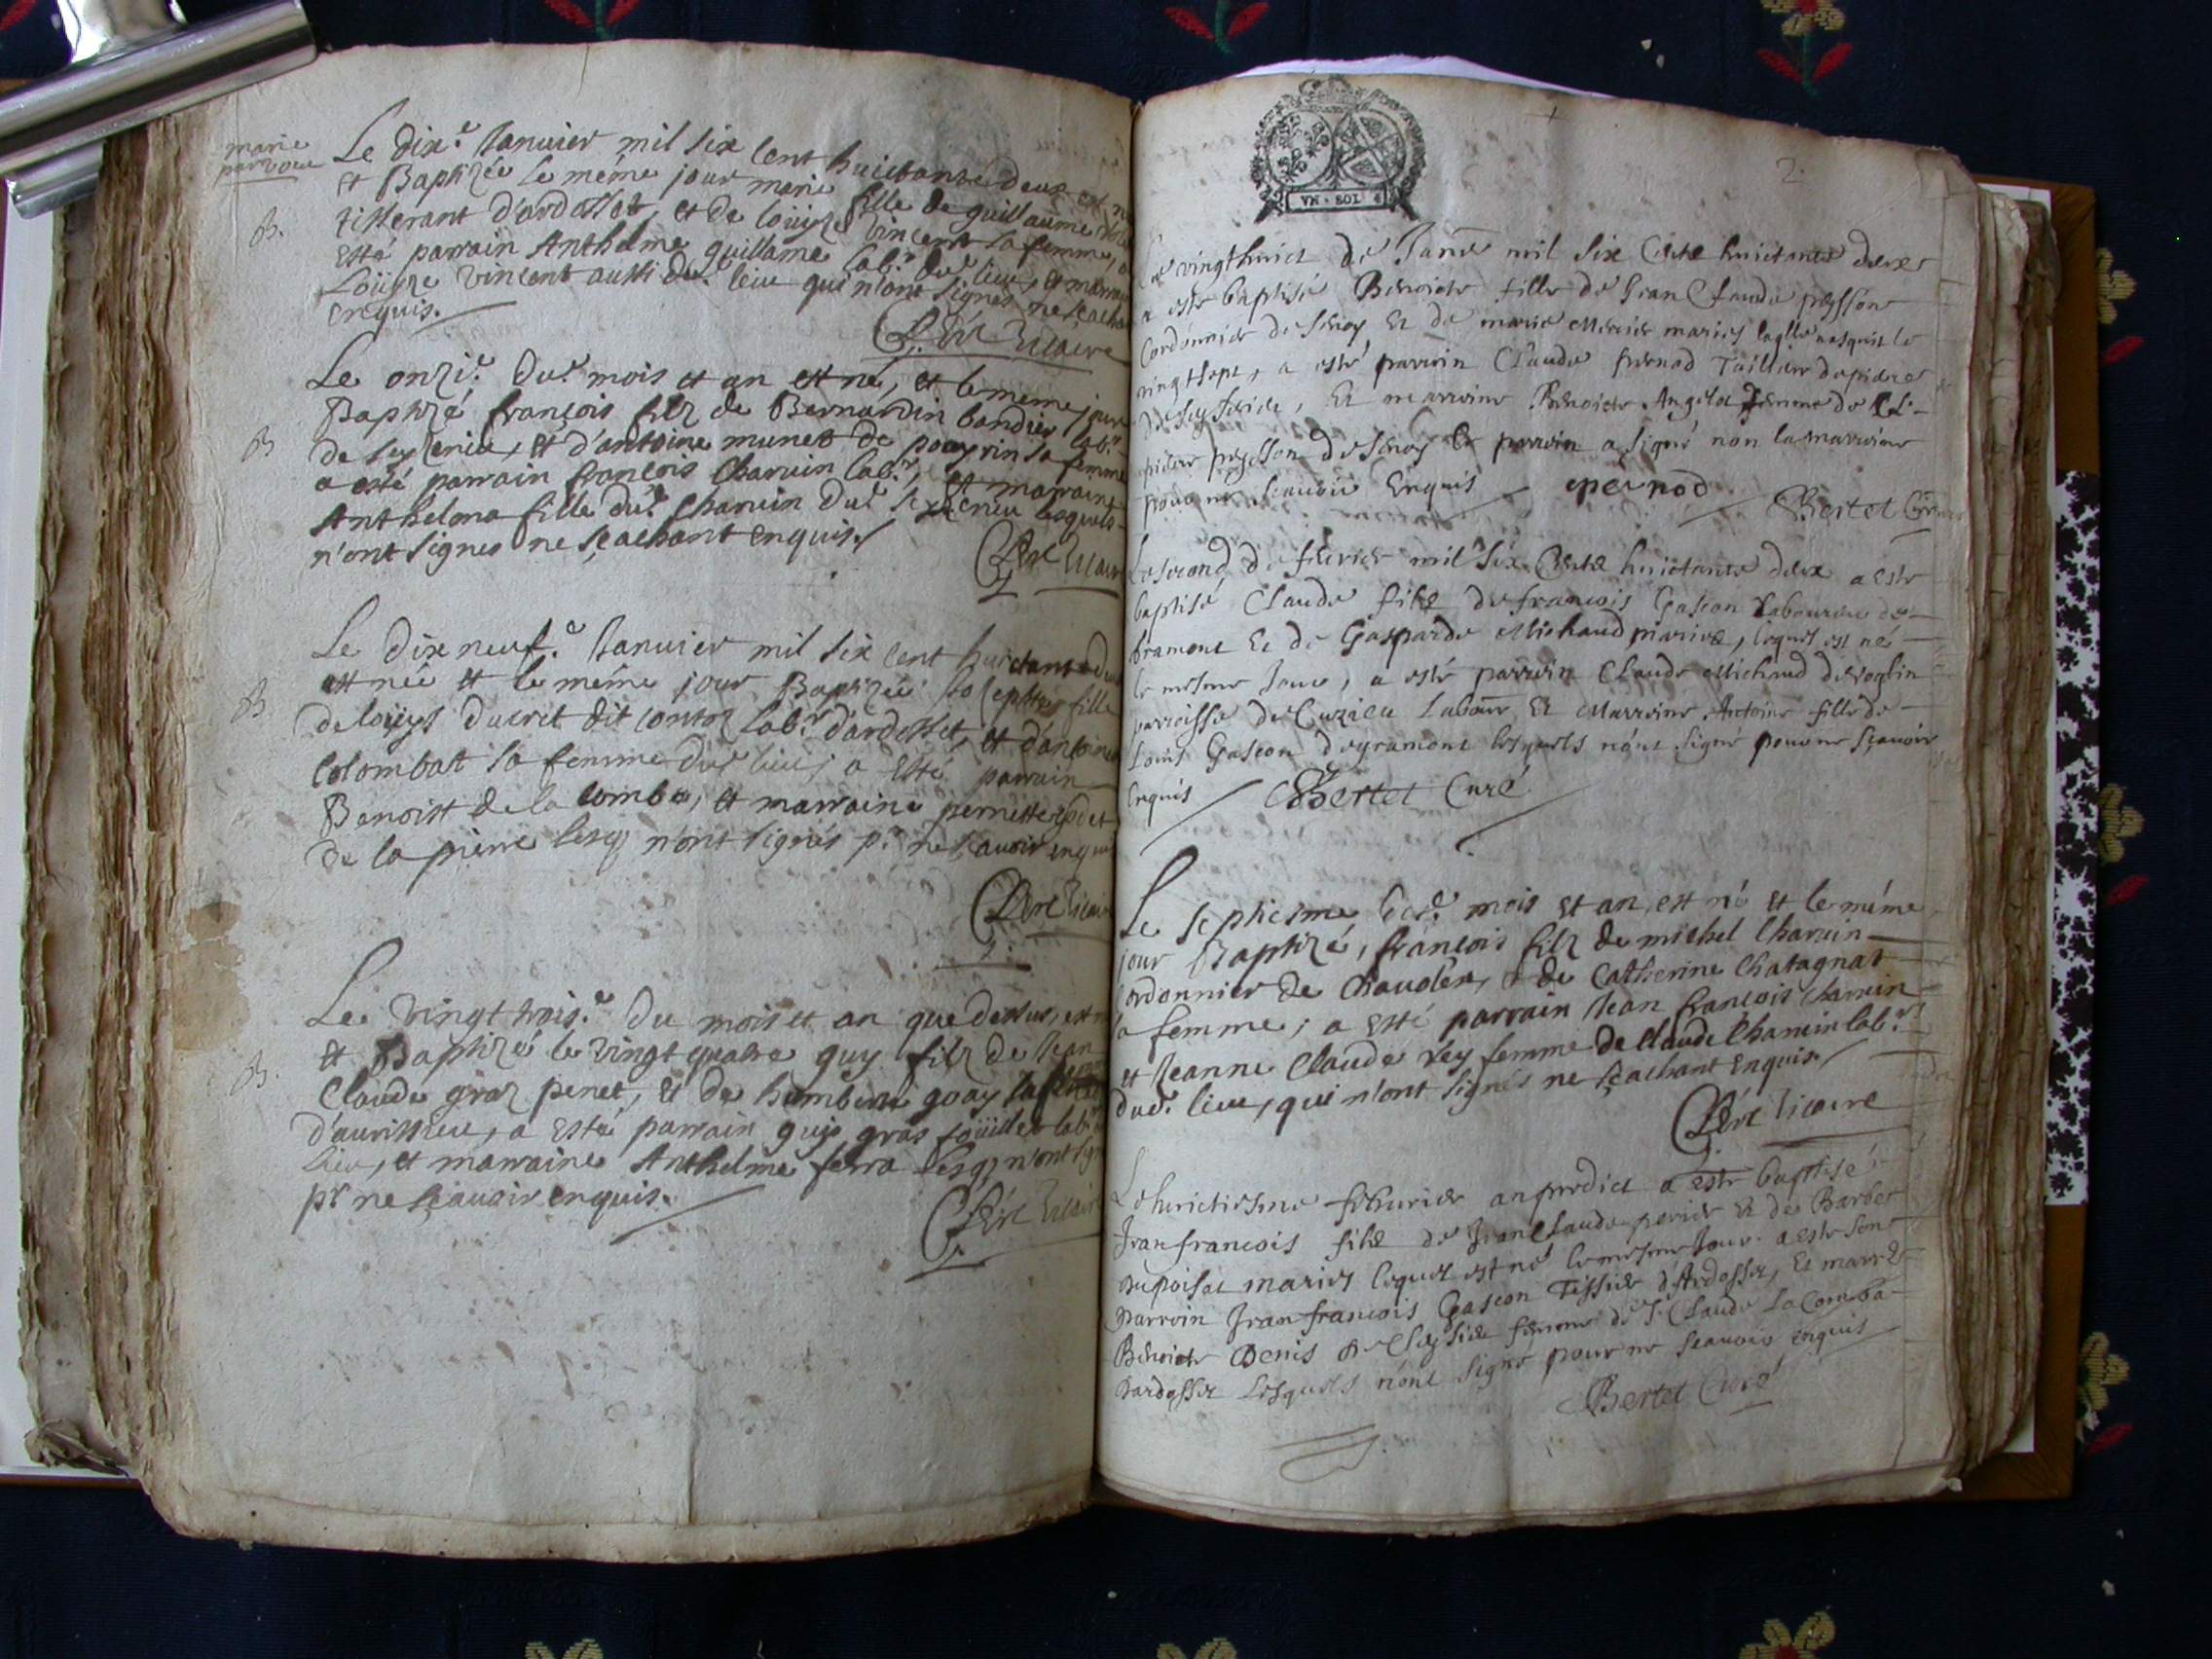 marie
Le dix.e Januier mil six cent huictante deux est n
et Baptizée le même jour marie fille de guillaume
tisserant d'ardosset, et de louyse vincent sa femme, a
esté parrain Anthelme guillame lab.r dud. lieu, et marrai
Louyse vincent aussi dud. lieu qui n'ont signés ne scacha
enquis.
vicaire
Le onzi.e dud. mois et an est né, et le meme jour
Baptizé françois filz de Bernardin bandier lab.r
B
de seyzerieu, et d'antoine munet de pouyrin sa femme
a esté parrain françois Charuin lab.r, et marraine
Anthelma fille dud. Charuin dud. seyzerieu lesquels
n'ont signes ne sçachant enquis.
vicaire
Le dix neuf.e Januier mil six cent huictante deu
est née et le même jour Baptizée Josephte fille
B
de louys ducret dit contoz lab.r d'ardosset, et d'antoine
Colombat sa femme dud. lieu; a esté parrain
Benoist de la combe, et marraine pernette
de la pierre lesq. n'ont signés p.r ne scauoir enquis
vicaire
Le vingt trois.e du mois et an que dessus, est n
et Baptizé le vingt quatre guy filz de Jean
B.
Claude graz penet, et de humberte goay sa femme
d'aurissieu, a esté parrain guys gras lab.r
lieu, et marraine Anthelme ferra lesq. n'ont sign
p.r ne sçauoir enquis.
vicaire
VN · SOL
2.
Le vingthuict de Janr mil six Cents huictante deux
a este baptisé Benoiste fille de Jean Claude peysson
Cordonnier de et de marie Mercier mariés laqlle nasquit le
vingtsept, a esté parrein Claude pernod Tailleur de pierre
de seyserieu, Et marreine Benoiste Angelot femme de
pierre peysson de le parrein a signé non la marreine
pour ne scauoir Enquis / epernod / Bertet Curé
Le second de feburier mil six Cents huictante deux a este
baptisé Claude filz de francois Gascon Laboureur de
et de Gasparde Michaud mariez, lequel est né
le mesme Jour, a esté parrein Claude Michaud de voglin
parroisse de Cuzieu Labour Et Marreine Antoine fille de
Louis Gascon lesquels n'ont signé pour ne sçauoir
Enquis / Bertet Curé
Le septiesme mois et an, est né et le méme
jour Baptizé, françois filz de michel Charuin
Cordonnier de Chaudère, et de Catherine Chatagnat
sa femme; a esté parrain Jean françois Charuin
et Jeanne Claude rey femme de claude Charuin lab.r
dud. lieu, qui n'ont signés ne sçachant enquis.
vicaire
Le huictiesme feburier an predict a este baptisé
Jean francois filz de Jean Claude perier et de Barbe
Dupoisat mariés lequel est né le mesme Jour. a este son
parrein Jean francois Gascon Tissier d'Ardosset, Et marre
Benoiste Denis de seysieu femme de J. Claude La Comba
d'ardosset Lesquels n'ont signé pour ne scauoir enquis
Bertet Curé